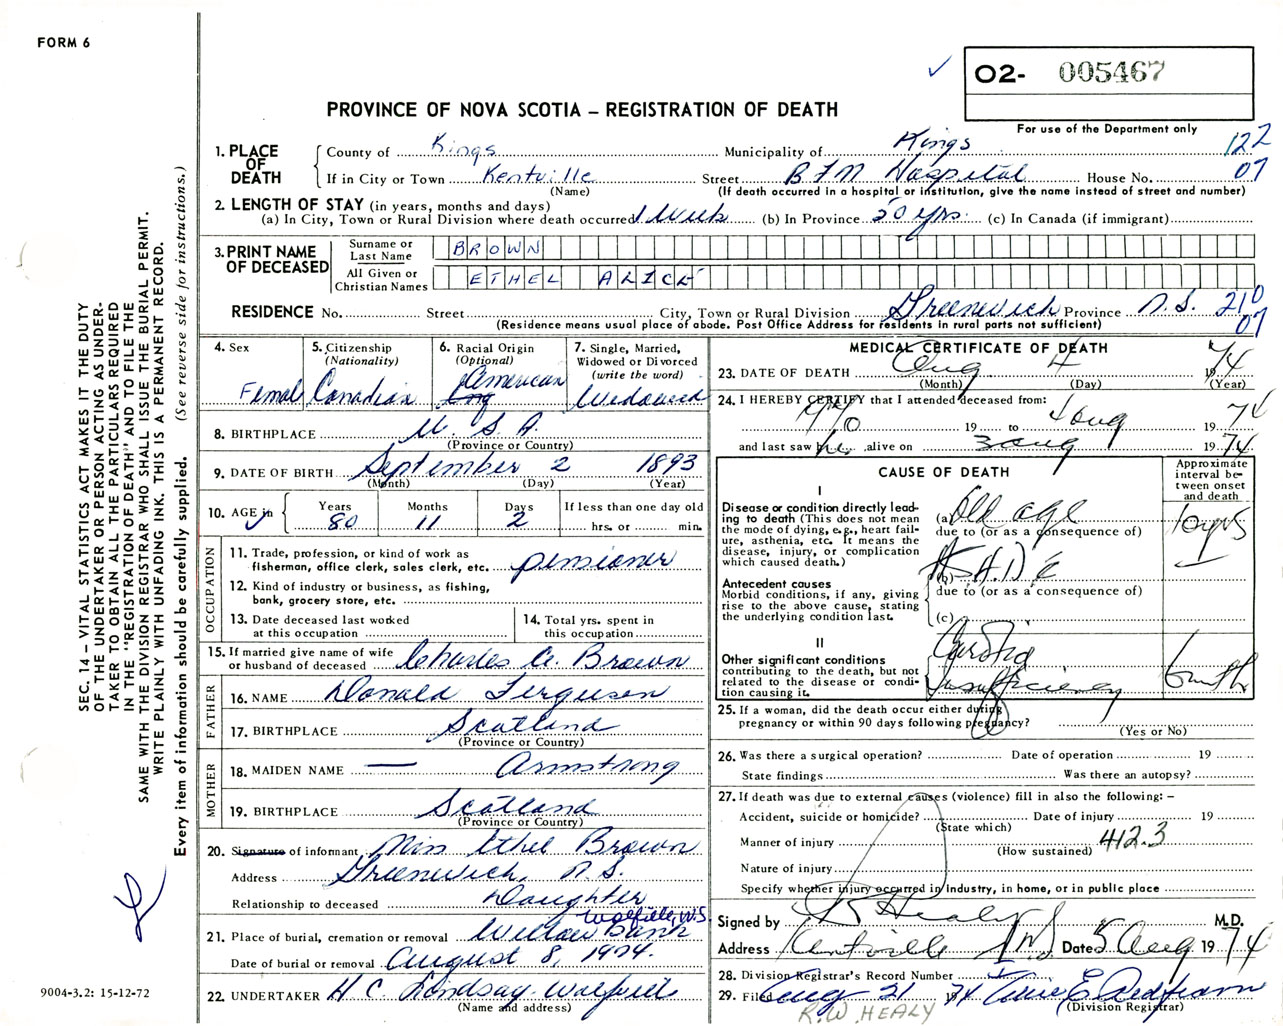 FORM 6
O2- 005467
PROVINCE OF NOVA SCOTIA – REGISTRATION OF DEATH
For use of the Department only
1. PLACE OF DEATH
County of Kings Municipality of Kings 122
If in City or Town Kentville Street B F M Hospital House No. 07
(Name) (If death occurred in a hospital or institution, give the name instead of street and number)
2. LENGTH OF STAY (in years, months and days)
(a) In City, Town or Rural Division where death occurred 1 Week (b) In Province 50 yrs. (c) In Canada (if immigrant)
3. PRINT NAME OF DECEASED
Surname or Last Name BROWN
All Given or Christian Names ETHEL ALICE
RESIDENCE No. Street City, Town or Rural Division Greenwich Province N.S. 210
(Residence means usual place of abode. Post Office Address for residents in rural parts not sufficient) 07
4. Sex Femal
5. Citizenship (Nationality) Canadian
6. Racial Origin (Optional) American Eng
7. Single, Married, Widowed or Divorced (write the word) Widowed
8. BIRTHPLACE U. S. A.
(Province or Country)
9. DATE OF BIRTH September 2 1893
(Month) (Day) (Year)
10. AGE in Years 80 Months 11 Days 2 If less than one day old hrs. or min.
OCCUPATION
11. Trade, profession, or kind of work as
fisherman, office clerk, sales clerk, etc. pensioner
12. Kind of industry or business, as fishing,
bank, grocery store, etc.
13. Date deceased last worked
at this occupation
14. Total yrs. spent in
this occupation
15. If married give name of wife
or husband of deceased Charles A. Brown
FATHER
16. NAME Donald Ferguson
17. BIRTHPLACE Scotland
(Province or Country)
MOTHER
18. MAIDEN NAME — Armstrong
19. BIRTHPLACE Scotland
(Province or Country)
20. Signature of informant Miss Ethel Brown
Address Greenwich, N.S.
Relationship to deceased Daughter
Wolfville, N.S
21. Place of burial, cremation or removal Willow Bank
Date of burial or removal August 8, 1974.
22. UNDERTAKER H C. Lindsay Wolfville
(Name and address)
MEDICAL CERTIFICATE OF DEATH
23. DATE OF DEATH Aug 4 1974
(Month) (Day) (Year)
24. I HEREBY CERTIFY that I attended deceased from:
19 to 4 Aug 1974
and last saw he alive on 3 Aug 1974
CAUSE OF DEATH
Approximate interval between onset and death
I
Disease or condition directly lead-
ing to death (This does not mean
the mode of dying, e.g., heart fail-
ure, asthenia, etc. It means the
disease, injury, or complication
which caused death.)
(a) Old age 10 yrs
due to (or as a consequence of)
Antecedent causes
Morbid conditions, if any, giving
rise to the above cause, stating
the underlying condition last.
(b)
due to (or as a consequence of)
(c)
II
Other significant conditions
contributing to the death, but not
related to the disease or condi-
tion causing it.
Cardiac
Insufficiency 6 mnth
25. If a woman, did the death occur either during
pregnancy or within 90 days following pregnancy?
(Yes or No)
26. Was there a surgical operation? Date of operation 19
State findings Was there an autopsy?
27. If death was due to external causes (violence) fill in also the following: –
Accident, suicide or homicide? Date of injury 19
(State which)
Manner of injury 412.3
(How sustained)
Nature of injury
Specify whether injury occurred in Industry, in home, or in public place
Signed by R Healy M.D.
Address Kentville N.S Date 5 Aug 1974
28. Division Registrar's Record Number
29. Filed Aug 21 1974
(Division Registrar)
R.W. HEALY
SEC. 14 – VITAL STATISTICS ACT MAKES IT THE DUTY
OF THE UNDERTAKER OR PERSON ACTING AS UNDER-
TAKER TO OBTAIN ALL THE PARTICULARS REQUIRED
IN THE "REGISTRATION OF DEATH" AND TO FILE THE
SAME WITH THE DIVISION REGISTRAR WHO SHALL ISSUE THE BURIAL PERMIT.
WRITE PLAINLY WITH UNFADING INK. THIS IS A PERMANENT RECORD.
Every item of information should be carefully supplied. (See reverse side for instructions.)
9004-3.2: 15-12-72